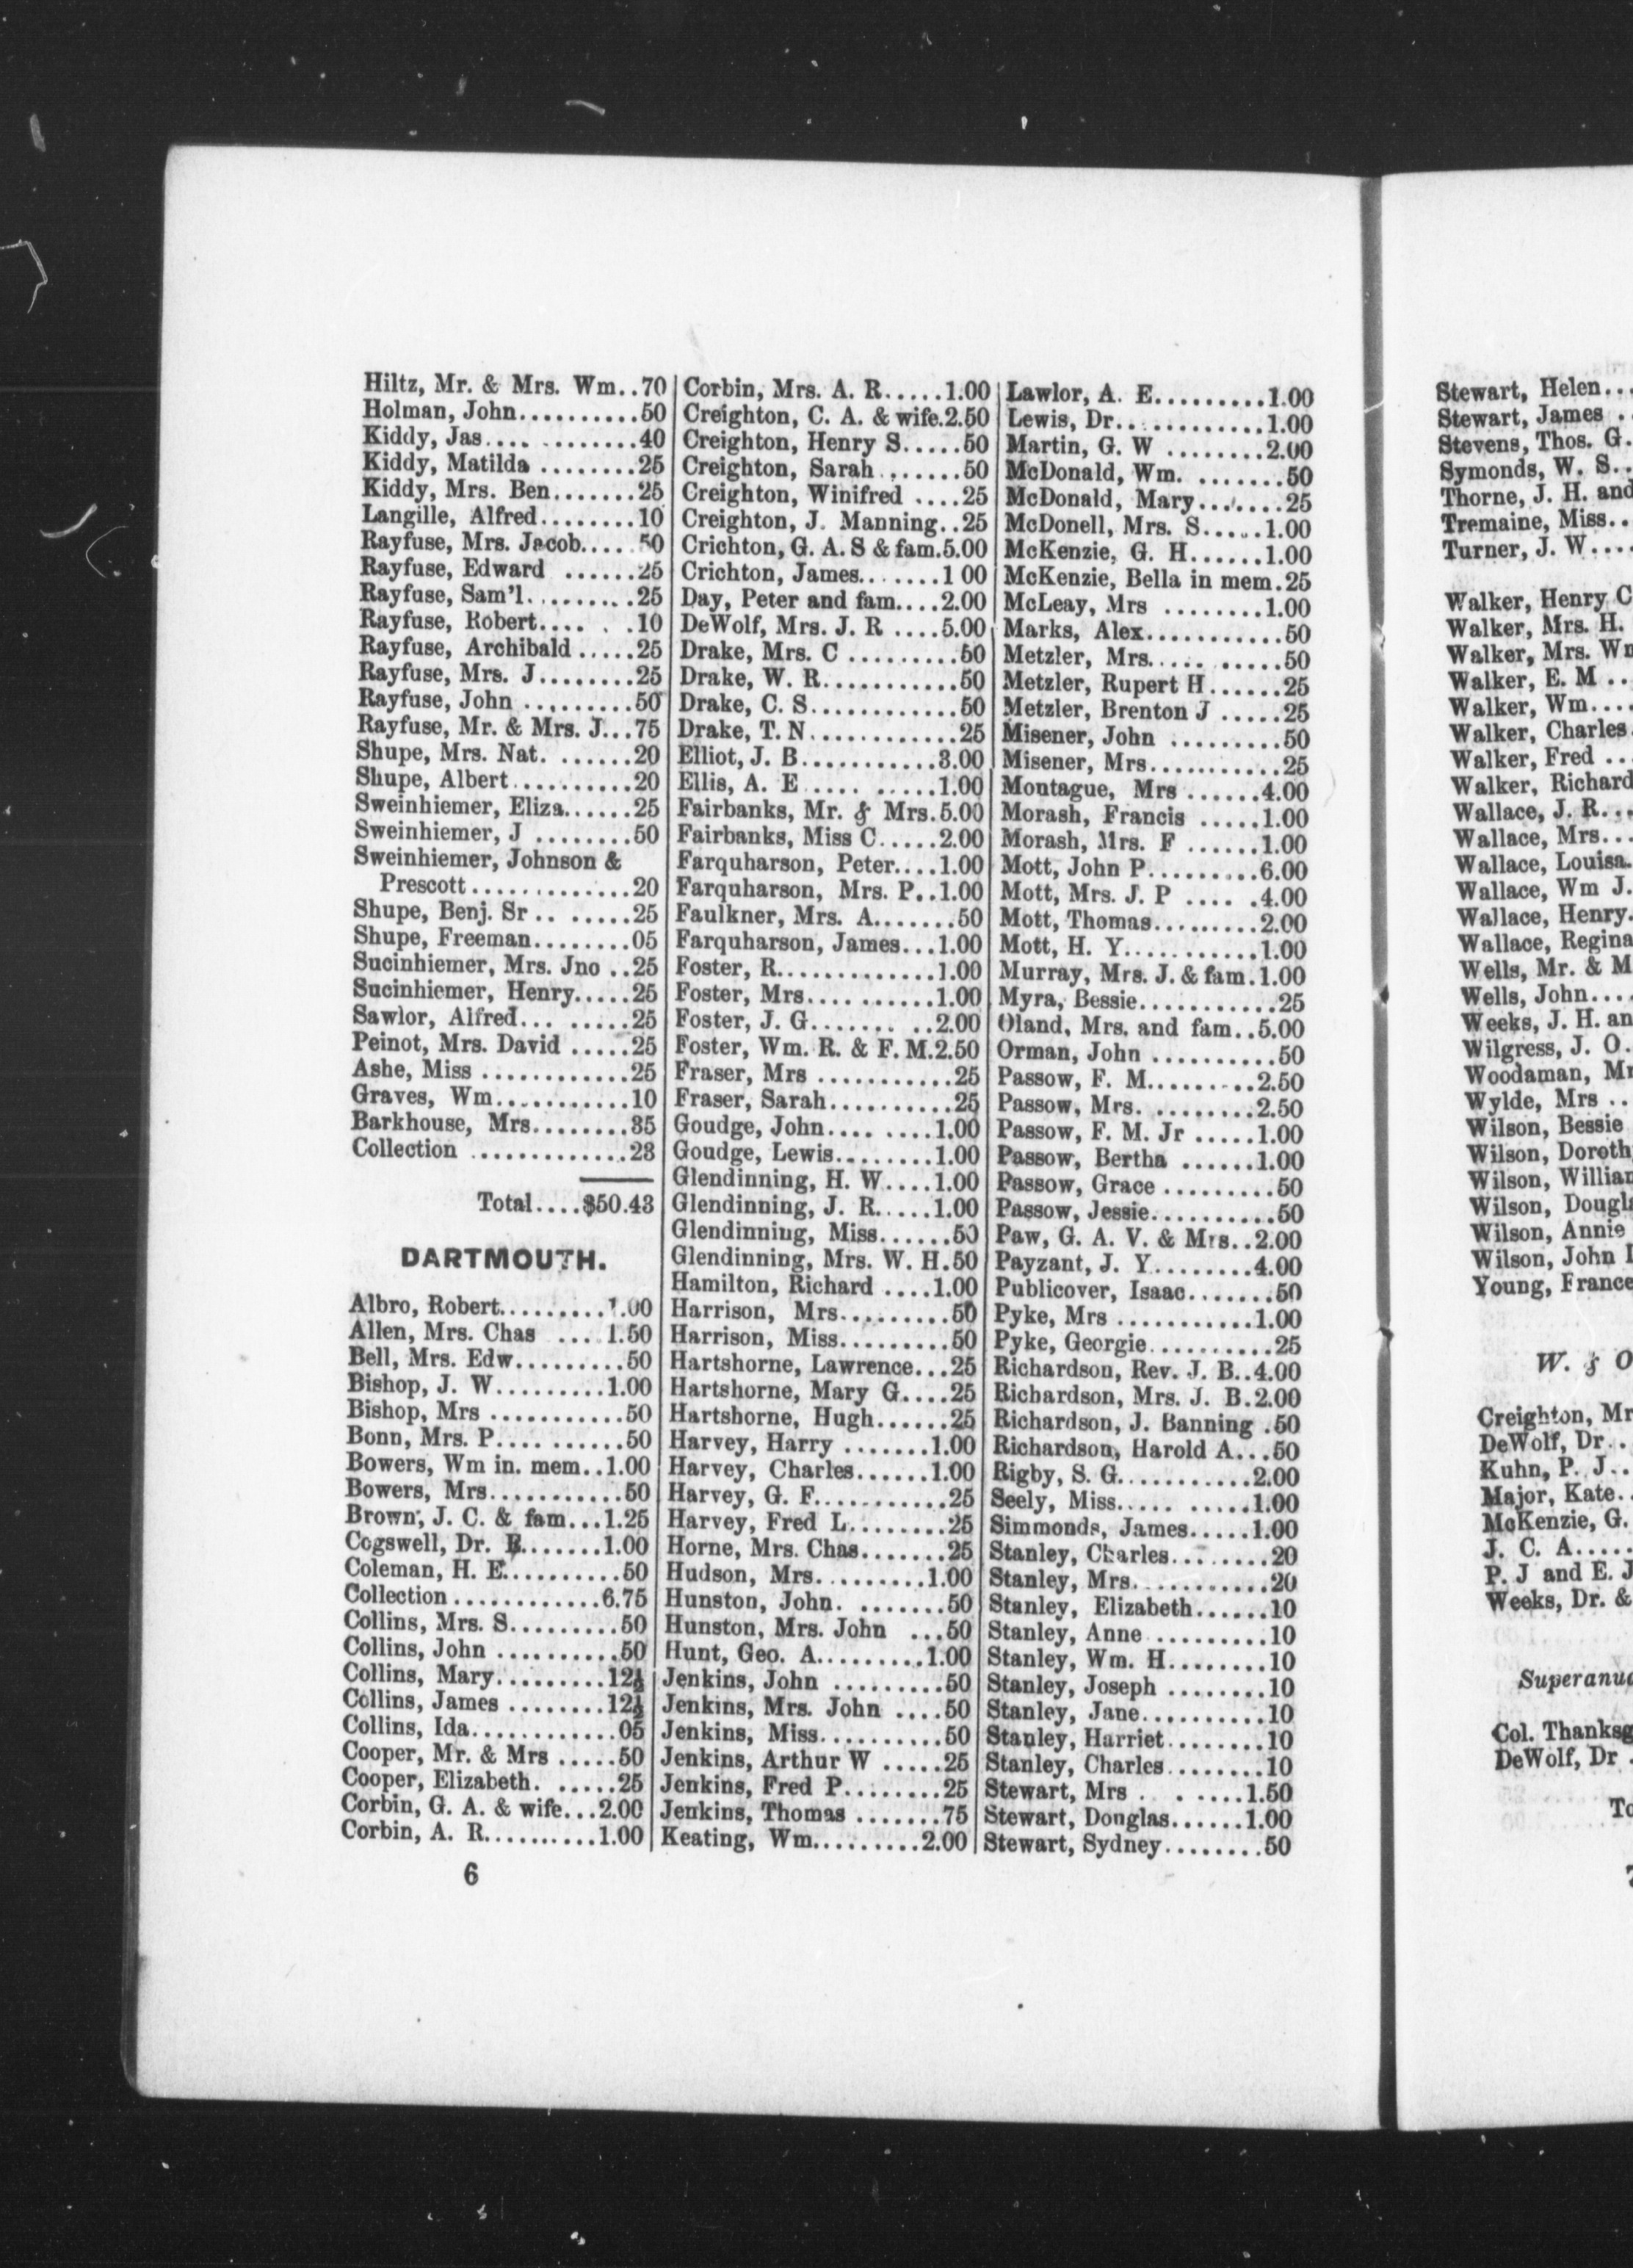 Hiltz, Mr. & Mrs. Wm..70
Holman, John..........50
Kiddy, Jas.... .........40
Kiddy, Matilda ........25
Kiddy, Mrs. Ben.......25
Langille, Alfred........10
Rayfuse, Mrs. Jacob.....50
Rayfuse, Edward ......25
Rayfuse, Sam'l.........25
Rayfuse, Robert.... . .10
Rayfuse, Archibald .....25
Rayfuse, Mrs. J........25
Rayfuse, John ..........50
Rayfuse, Mr. & Mrs. J...75
Shupe, Mrs. Nat. .......20
Shupe, Albert..........20
Sweinhiemer, Eliza......25
Sweinhiemer, J ........50
Sweinhiemer, Johnson &
Prescott..............20
Shupe, Benj. Sr .. ......25
Shupe, Freeman........05
Sucinhiemer, Mrs. Jno ..25
Sucinhiemer, Henry.....25
Sawlor, Alfred... ......25
Peinot, Mrs. David .....25
Ashe, Miss ............25
Graves, Wm...........10
Barkhouse, Mrs........35
Collection .............23
Total....$50.43
DARTMOUTH.
Albro, Robert.........1.00
Allen, Mrs. Chas .... 1.50
Bell, Mrs. Edw.........50
Bishop, J. W.........1.00
Bishop, Mrs ...........50
Bonn, Mrs. P.... ......50
Bowers, Wm in. mem..1.00
Bowers, Mrs............50
Brown, J. C. & fam...1.25
Cogswell, Dr. E.......1.00
Coleman, H. E..........50
Collection ............6.75
Collins, Mrs. S.........50
Collins, John ..........50
Collins, Mary.........12½
Collins, James ........12½
Collins, Ida............05
Cooper, Mr. & Mrs .....50
Cooper, Elizabeth. ......25
Corbin, G. A. & wife...2.00
Corbin, A. R..........1.00
6
Corbin, Mrs. A. R.....1.00
Creighton, C. A. & wife.2.50
Creighton, Henry S.....50
Creighton, Sarah.......50
Creighton, Winifred ....25
Creighton, J. Manning..25
Crichton, G. A. S & fam.5.00
Crichton, James.......1 00
Day, Peter and fam....2.00
DeWolf, Mrs. J. R ....5.00
Drake, Mrs. C .........50
Drake, W. R...........50
Drake, C. S............50
Drake, T. N............25
Elliot, J. B...........3.00
Ellis, A. E..... .....1.00
Fairbanks, Mr. & Mrs.5.00
Fairbanks, Miss C.....2.00
Farquharson, Peter....1.00
Farquharson, Mrs. P..1.00
Faulkner, Mrs. A.......50
Farquharson, James...1.00
Foster, R.............1.00
Foster, Mrs...........1.00
Foster, J. G....... ..2.00
Foster, Wm. R. & F. M.2.50
Fraser, Mrs ...........25
Fraser, Sarah..........25
Goudge, John.... .....1.00
Goudge, Lewis........1.00
Glendinning, H. W....1.00
Glendinning, J. R.....1.00
Glendinning, Miss......50
Glendinning, Mrs. W. H.50
Hamilton, Richard ....1.00
Harrison, Mrs.........50
Harrison, Miss.........50
Hartshorne, Lawrence...25
Hartshorne, Mary G....25
Hartshorne, Hugh......25
Harvey, Harry .......1.00
Harvey, Charles......1.00
Harvey, G. F...........25
Harvey, Fred L........25
Horne, Mrs. Chas.......25
Hudson, Mrs.........1.00
Hunston, John. .......50
Hunston, Mrs. John ...50
Hunt, Geo. A.........1.00
Jenkins, John .........50
Jenkins, Mrs. John ....50
Jenkins, Miss..........50
Jenkins, Arthur W .....25
Jenkins, Fred P........25
Jenkins, Thomas .......75
Keating, Wm.........2.00
Lawlor, A. E.........1.00
Lewis, Dr............1.00
Martin, G. W ........2.00
McDonald, Wm. .......50
McDonald, Mary........25
McDonell, Mrs. S.....1.00
McKenzie, G. H......1.00
McKenzie, Bella in mem.25
McLeay, Mrs ........1.00
Marks, Alex...........50
Metzler, Mrs..... ......50
Metzler, Rupert H......25
Metzler, Brenton J .....25
Misener, John .........50
Misener, Mrs...........25
Montague, Mrs ......4.00
Morash, Francis .....1.00
Morash, Mrs. F ......1.00
Mott, John P.........6.00
Mott, Mrs. J. P .... .4.00
Mott, Thomas.........2.00
Mott, H. Y...........1.00
Murray, Mrs. J. & fam.1.00
Myra, Bessie...........25
Oland, Mrs. and fam..5.00
Orman, John ..........50
Passow, F. M.........2.50
Passow, Mrs. ........2.50
Passow, F. M. Jr .....1.00
Passow, Bertha ......1.00
Passow, Grace .........50
Passow, Jessie..........50
Paw, G. A. V. & Mrs..2.00
Payzant, J. Y........4.00
Publicover, Isaac.......50
Pyke, Mrs ...........1.00
Pyke, Georgie..........25
Richardson, Rev. J. B..4.00
Richardson, Mrs. J. B.2.00
Richardson, J. Banning .50
Richardson, Harold A...50
Rigby, S. G...........2.00
Seely, Miss..... .....1.00
Simmonds, James.....1.00
Stanley, Charles........20
Stanley, Mrs...........20
Stanley, Elizabeth......10
Stanley, Anne .........10
Stanley, Wm. H........10
Stanley, Joseph ........10
Stanley, Jane..........10
Stanley, Harriet........10
Stanley, Charles........10
Stewart, Mrs . . .....1.50
Stewart, Donglas......1.00
Stewart, Sydney........50
Stewart, Helen...
Stewart, James ..
Stevens, Thos. G.
Symonds, W. S..
Thorne, J. H. and
Tremaine, Miss..
Turner, J. W....
Walker, Henry C
Walker, Mrs. H.
Walker, Mrs.
Walker, E. M ..
Walker, Wm....
Walker, Charles.
Walker, Fred ...
Walker, Richard
Wallace, J. R...
Wallace, Mrs...
Wallace, Louisa.
Wallace, Wm J.
Wallace, Henry.
Wallace, Regina
Wells, Mr. & M
Wells, John....
Weeks, J. H. an
Wilgress, J. O.
Woodaman,
Wylde, Mrs ..
Wilson, Bessie
Wilson, Doroth
Wilson, Willian
Wilson, Dougl
Wilson, Annie
Wilson, John
Young, France
W. & O
Creighton, Mr
DeWolf, Dr..
Kuhn, P. J..
Major, Kate..
McKenzie, G.
J. C. A.....
P. J and E. J
Weeks, Dr. &
Superanu
Col. Thanksg
DeWolf, Dr .
To